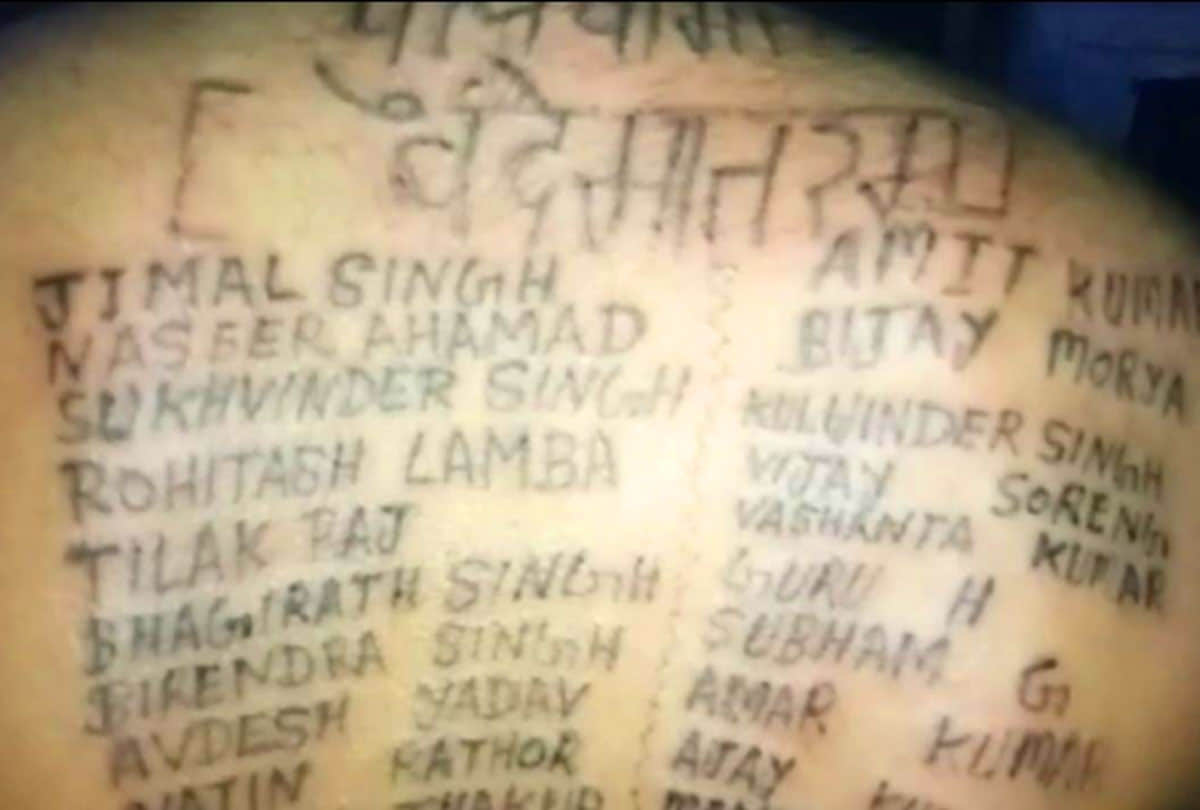 वंदे मातरम
JIMAL SINGH
NASEER AHAMAD
SUKHVINDER SINGH
ROHITASH LAMBA
TILAK RAJ
BHAGIRATH SINGH
BIRENDRA SINGH
AVDESH YADAV
RATHOR
AMIT KUMAR
BIJAY MORYA
KULWINDER SINGH
VIJAY SORENG
VASHANTA KUMAR
GURU H
SUBHAM G
AMAR KUMAR
AJAY